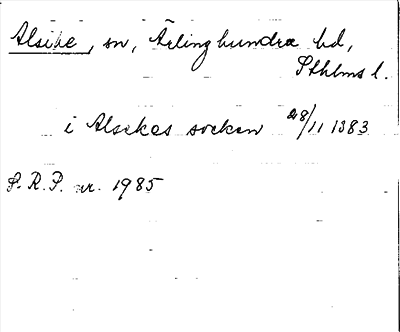 Alsike, sn, Ärlinghundra hd,
Sthlms l.
i Alsekes socken 28/11 1383
S.R.P. nr. 1985